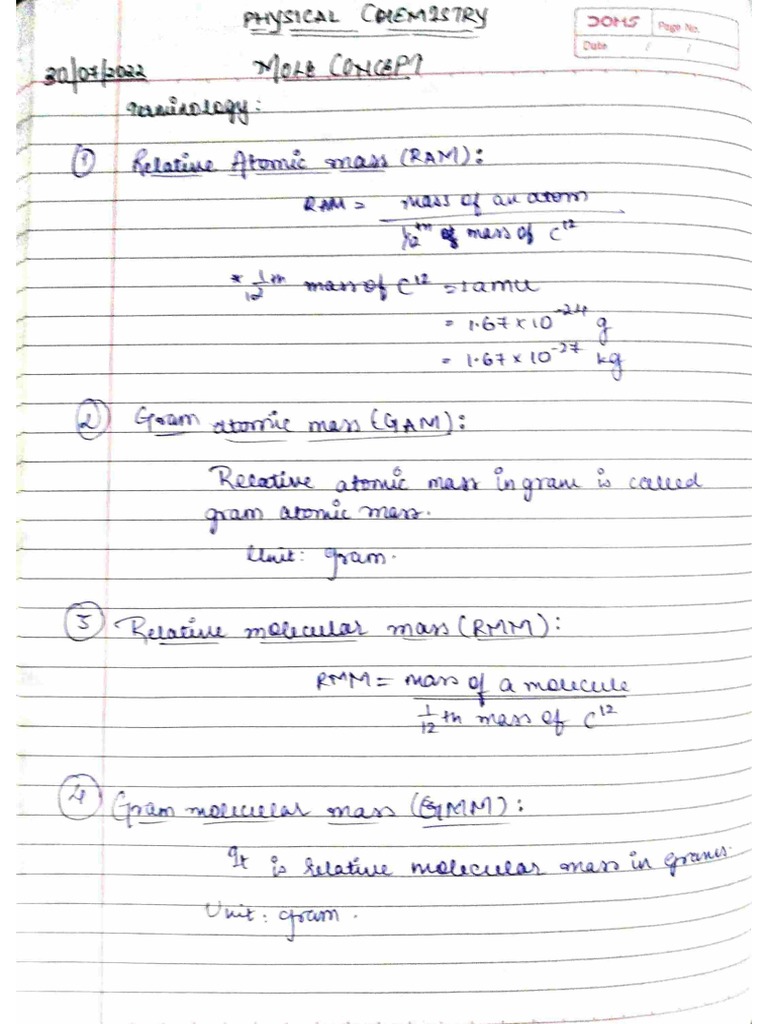 PHYSICAL CHEMISTRY
DOMS Page No.
Date / /
30/07/2022 MOLE CONCEPT
Terminology:
① Relative Atomic mass (RAM):
RAM = mass of an atom
1/12th of mass of C¹²
* 1/12 th mass of C¹² = 1amu
= 1.67 × 10⁻²⁴ g
= 1.67 × 10⁻²⁷ kg
② Gram atomic mass (GAM):
Relative atomic mass in gram is called
gram atomic mass.
Unit: gram.
③ Relative molecular mass (RMM):
RMM = mass of a molecule
1/12 th mass of C¹²
④ Gram molecular mass (GMM):
It is relative molecular mass in grams.
Unit: gram.